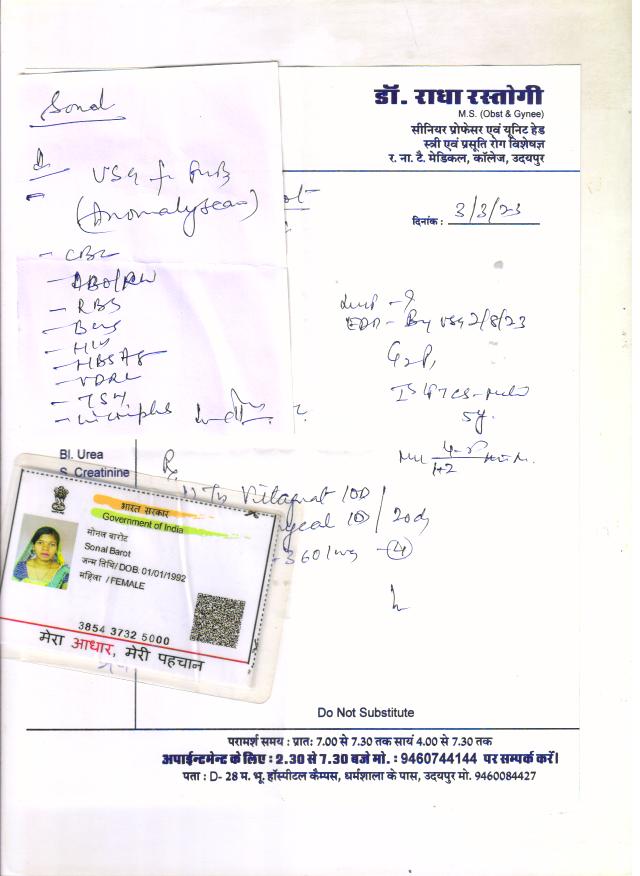 Sonal
USG
(Anomaly scan)
- CBC
- ABO/Rh
- RBS
- HIV
- HBSAg
- VDRL
- TSH
डॉ. राधा रस्तोगी
M.S. (Obst & Gynee)
सीनियर प्रोफेसर एवं यूनिट हेड
स्त्री एवं प्रसूति रोग विशेषज्ञ
र. ना. टै. मेडिकल, कॉलेज, उदयपुर
दिनांक : 3/3/23
LMP - ?
EDD - By USG 2/8/23
G2P1
5y.
Bl. Urea
S. Creatinine
Rx
360 mg - (4)
भारत सरकार
Government of India
सोनल बारोट
Sonal Barot
जन्म तिथि/ DOB: 01/01/1992
महिला / FEMALE
3854 3732 5000
मेरा आधार, मेरी पहचान
Do Not Substitute
परामर्श समय : प्रातः 7.00 से 7.30 तक सायं 4.00 से 7.30 तक
अपाईन्टमेन्ट के लिए : 2.30 से 7.30 बजे मो. : 9460744144 पर सम्पर्क करें।
पता : D- 28 म. भू. हॉस्पीटल कैम्पस, धर्मशाला के पास, उदयपुर मो. 9460084427